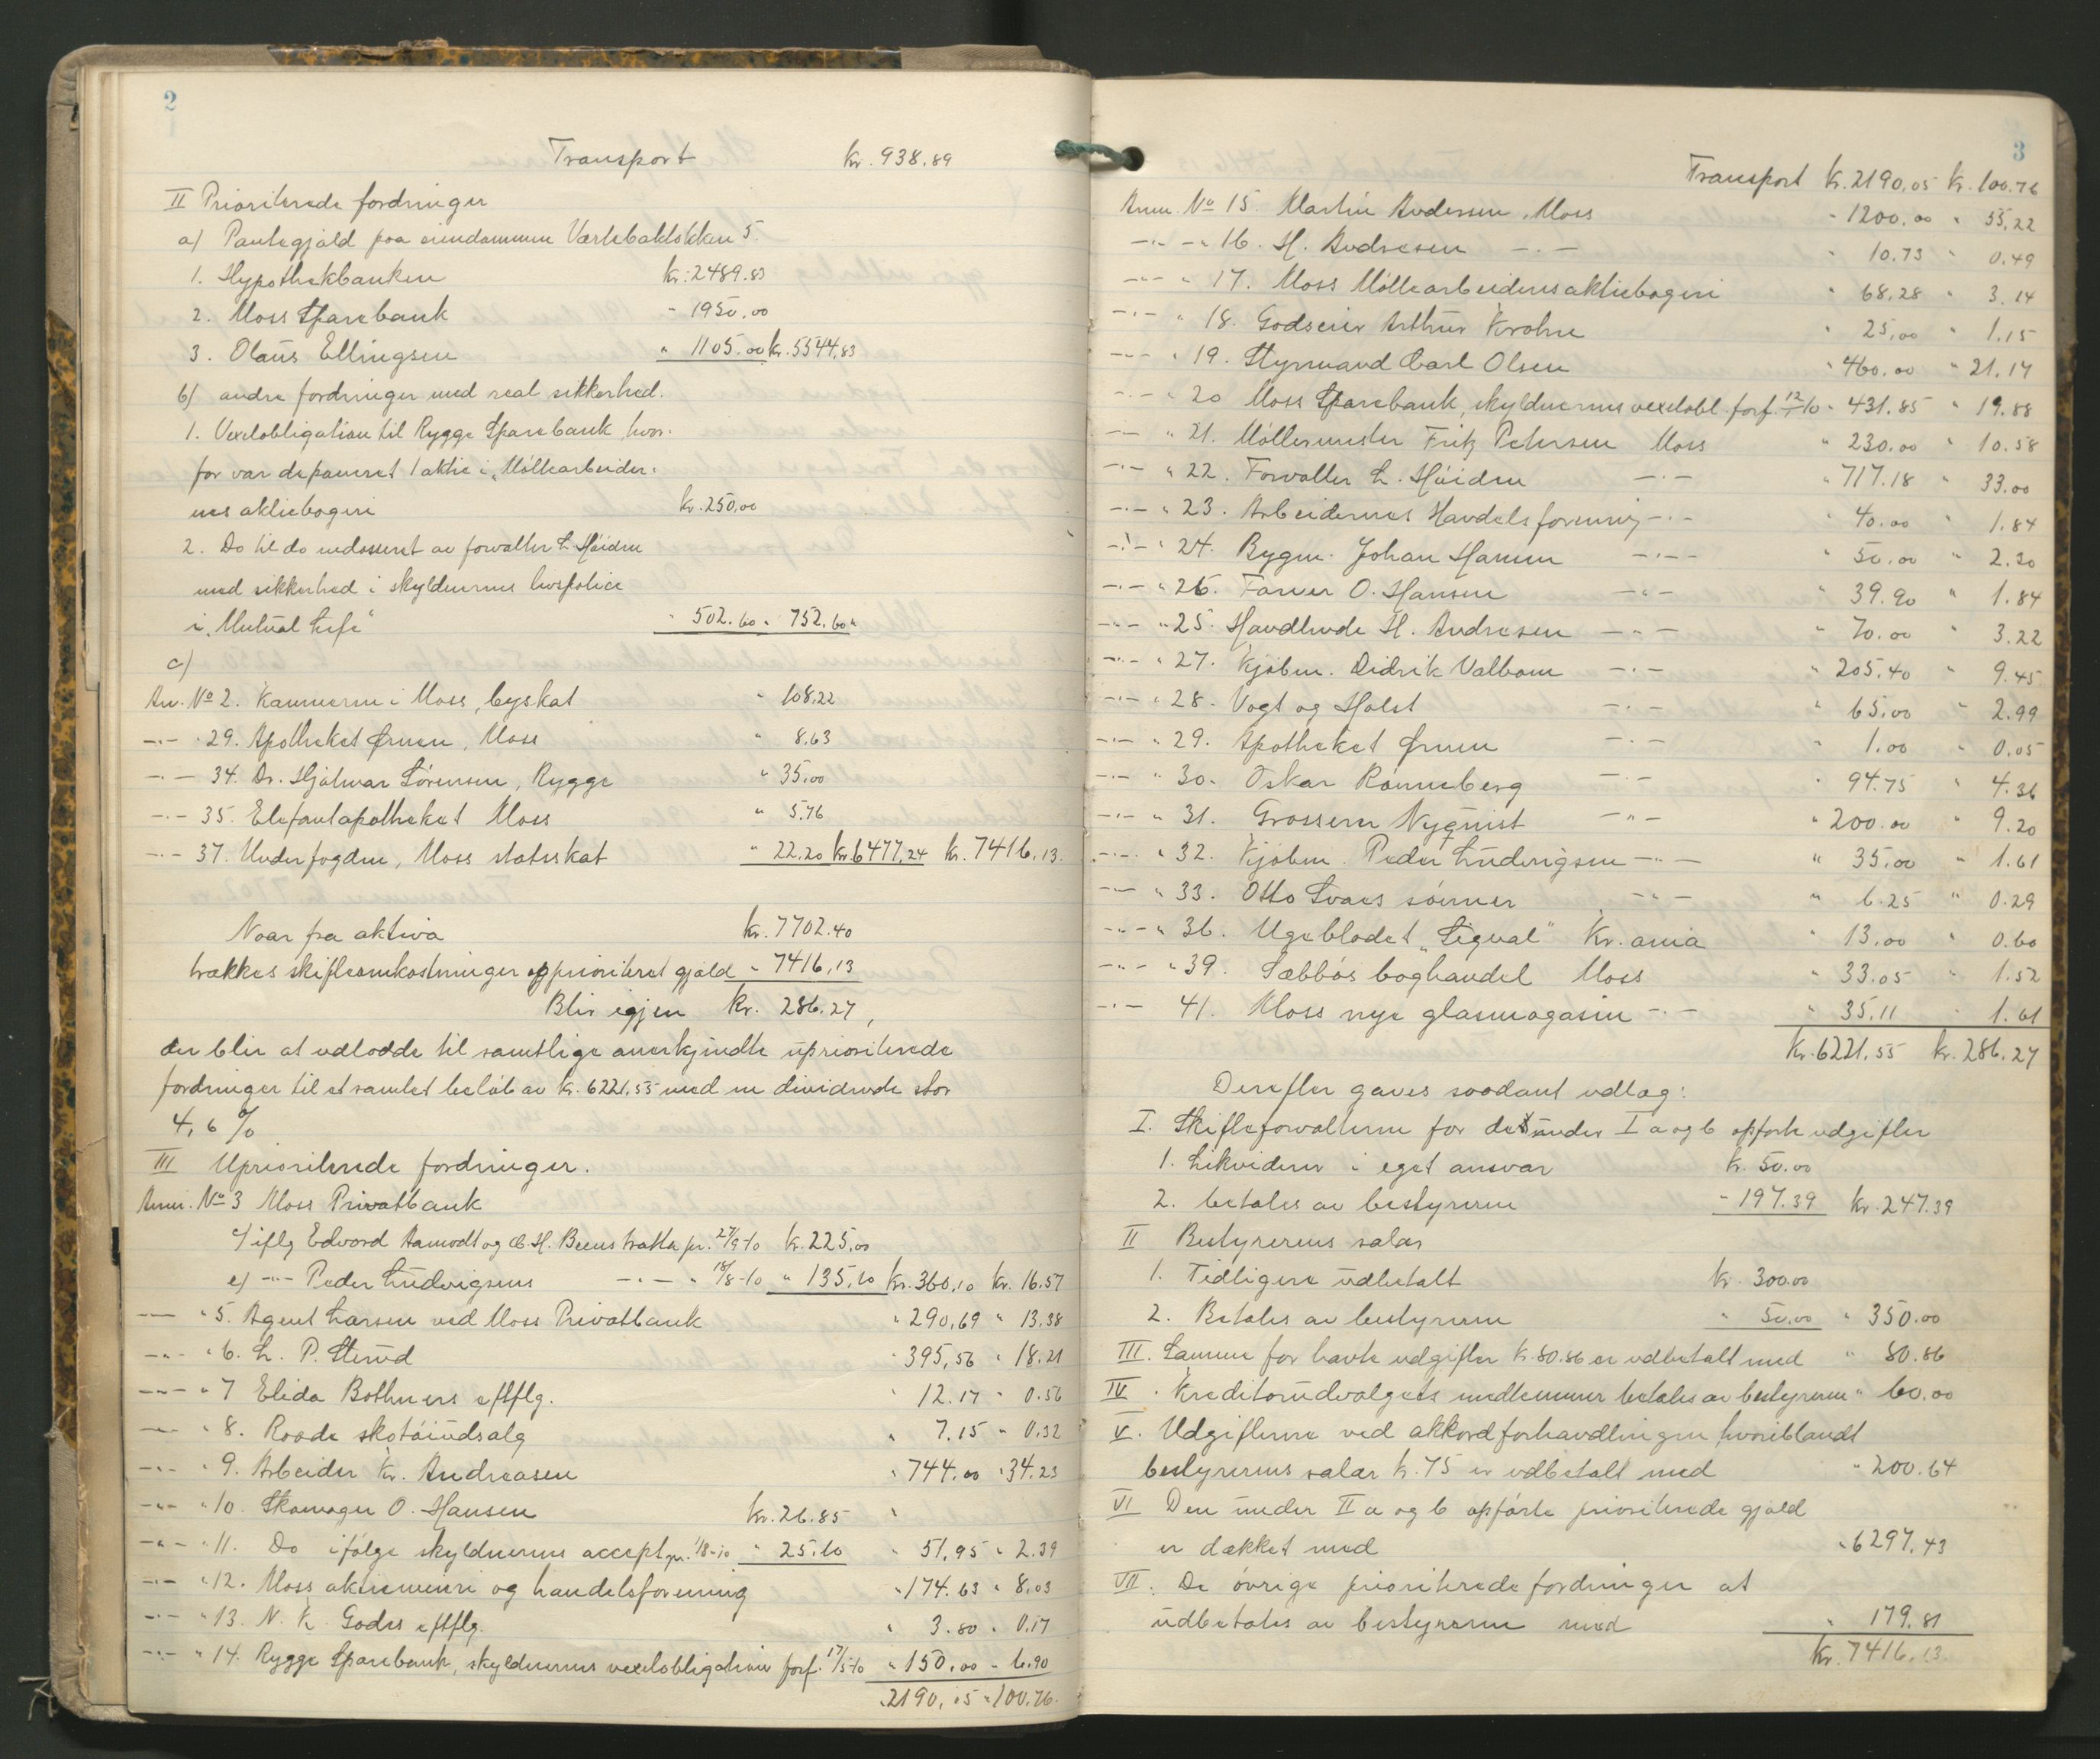 2
Transport kr. 938.89
II Prioriterede fordringer
a) Pantegjæld paa eiendommen Værlebakløkken 5.
1. Hypothekbanken kr. 2489.83
2. Moss Sparebank - 1950.00
3. Olaus Ellingsen " 1105.00 kr. 5544.83
b) andre fordringer med real sikkerhed.
1. Vexelobligation til Rygge Sparebank, hvor-
for var deponeret 1 aktie i „Møllearbeider-
nes aktiebageri kr. 250.00
2. Do til do endosseret av forvalter L. Høiden
med sikkerhed i skyldnerens livspolice
i „Mutual Life" - 502.60 " 752.60 "
c)
Anm. No 2. Kæmneren i Moss, byskat - 108.22
-"- " 29. Apotheket Ørnen, Moss " 8.63
-"- 34. Dr. Hjalmar Sørensen, Rygge " 35.00
-"- 35. Elefantapotheket Moss " 5.76
-"- 37. Underfogden, Moss statsskat " 22.20 kr. 6477.24 kr. 7416.13.
Naar fra aktiva kr. 7702.40
trækkes skifteomkostninger og prioriteret gjæld " 7416.13
Blir igjen kr. 286.27,
der blir at udlodde til samtlige anerkjendte uprioriterede
fordringer til et samlet beløb av kr. 6221.55 med en dividende stor
4,6 %
III Uprioriterede fordringer.
Anm. No 3 Moss Privatbank
c) iflg Edvard Aamodt og C. H. Beens tratta pr. 27/9-10 kr. 225.00
e) -"- Peder Ludvigsens -"- " 18/8-10 " 135.10 kr. 360.10 kr. 16.57
-"- " 5. Agent Larsen ved Moss Privatbank " 290.69 " 13.38
-"- " 6. L. P. Sterud " 395.56 " 18.21
-"- " 7 Elida Bothners eftflg. " 12.17 " 0.56
-"- " 8. Raade skotøiudsalg " 7.15 " 0.32
-"- " 9. Arbeider Kr. Andreasen " 744.00 " 34.23
-"- " 10. Skomager O. Hansen kr. 26.85 "
-"- " 11. Do ifølge skyldnerens accept pr. 1/8-10 " 25.10 " 51.95 " 2.39
-"- " 12. Moss aktiemeieri og handelsforening " 174.63 " 8.03
-"- " 13. N. K. Godes eftflg. " 3.80 " 0.17
-"- " 14. Rygge Sparebank, skyldnerens vexelobligation forf. 17/5-10 " 150.00 - 6.90
" 2190.05 " 100.76
3
Transport kr. 2190.05 kr. 100.76
Anm. No 15. Martin Andersen, Moss - 1200.00 " 55.22
-"- " 16. H. Andresen -"- " 10.73 " 0.49
-"- " 17. Moss Møllearbeideres aktiebageri " 68.28 " 3.14
-"- " 18. Godseier Arthur Krohn " 25.00 " 1.15
-"- " 19. Styrmand Carl Olsen " 460.00 " 21.17
-"- " 20 Moss Sparebank, skyldnerens vexelobl. forf. 12/7-10 " 431.85 " 19.88
-"- " 21. Møllermester Fritz Petersen Moss " 230.00 " 10.58
-"- " 22. Forvalter L. Høiden -"- " 717.18 " 33.00
-"- " 23. Arbeidernes Handelsforening -"- " 40.00 " 1.84
-"- " 24. Bygm. Johan Hansen -"- " 50.00 " 2.30
-"- " 26. Farver O. Hansen -"- " 39.90 " 1.84
-"- " 25. Handlende H. Andresen -"- " 70.00 " 3.22
-"- " 27. Kjøbm. Didrik Valbom -"- " 205.40 " 9.45
-"- " 28. Vogt og Holst -"- " 65.00 " 2.99
-"- " 29. Apotheket Ørnen -"- " 1.00 " 0.05
-"- " 30. Oskar Rønneberg -"- " 94.75 " 4.36
-"- " 31. Grosserer Nyqvist -"- " 200.00 " 9.20
-"- " 32. Kjøbm. Peder Ludvigsen -"- " 35.00 " 1.61
-"- " 33. Otto Svaes sønner -"- " 6.25 " 0.29
-"- " 36. Ugebladet „Signal" Kr.ania " 13.00 " 0.60
-"- " 39. Sæbbøs boghandel Moss " 33.05 " 1.52
-"- 41. Moss nye glasmagasin -"- " 35.11 " 1.61
kr. 6221.55 kr. 286.27
Derefter gaves saadant udlæg:
I. Skifteforvalteren for de under I a og b opførte udgifter
1. Likviderer i eget ansvar kr. 50.00
2. betales av bestyreren - 197.39 kr. 247.39
II Bestyrerens salær
1. Tidligere udbetalt kr. 300.00
2. Betales av bestyreren " 50.00 " 350.00
III. Samme for havte udgifter kr. 80.86 er udbetalt med " 80.86
IV. Kreditorudvalgets medlemmer betales av bestyreren " 60.00
V. Udgifterne ved akkordforhandlingen hvoriblandt
bestyrerens salær kr. 75 er udbetalt med " 200.64
VI Den under II a og b opførte prioriterede gjæld
er dækket med " 6297.43
VII. De øvrige prioriterede fordringer at
udbetales av bestyreren med " 179.81
kr. 7416.13.